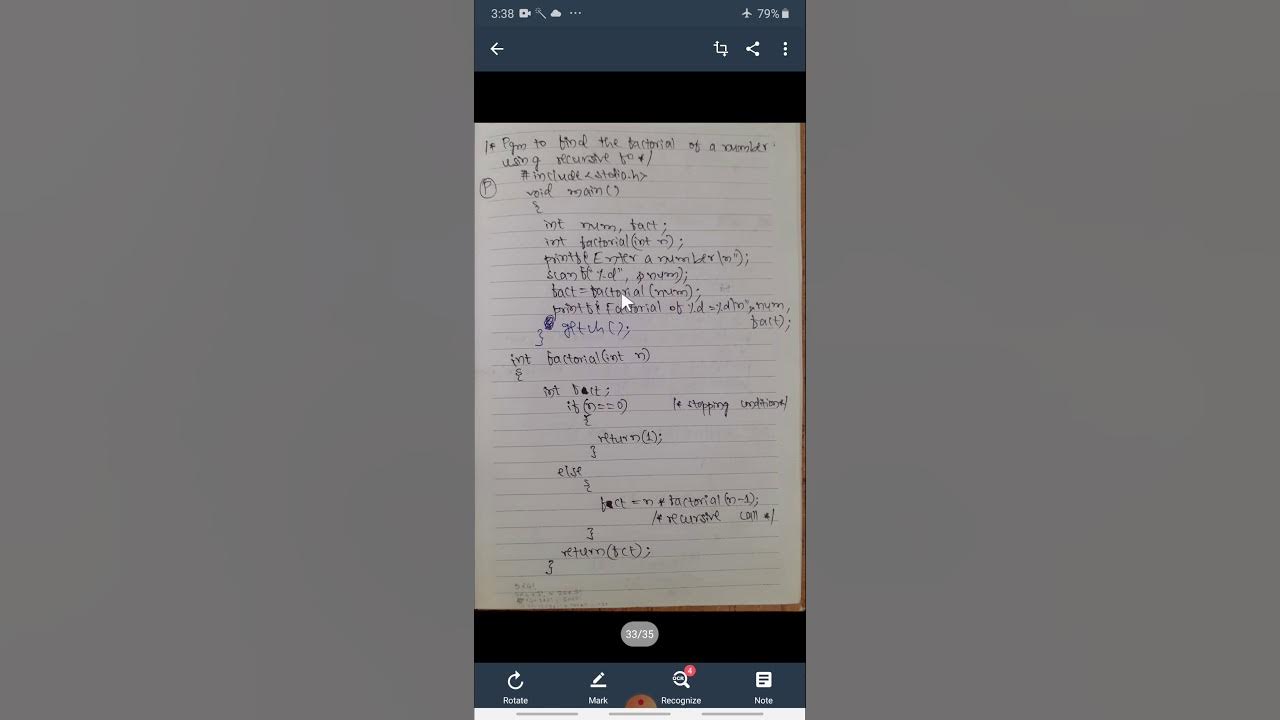 3:38 ... 79%
/* Pgm to find the factorial of a number
using recursive fn */
#include<stdio.h>
P
void main()
{
int num, fact;
int factorial(int n);
printf("Enter a number\n");
scanf("%d", &num);
fact=factorial(num);
printf("Factorial of %d=%d\n", num,
fact);
getch();
}
int factorial(int n)
{
int fct;
if(n==0) /* stopping condition*/
{
return(1);
}
else
{
fct=n*factorial(n-1);
/*recursive call*/
}
return(fct);
}
33/35
OCR 4
Rotate Mark Recognize Note